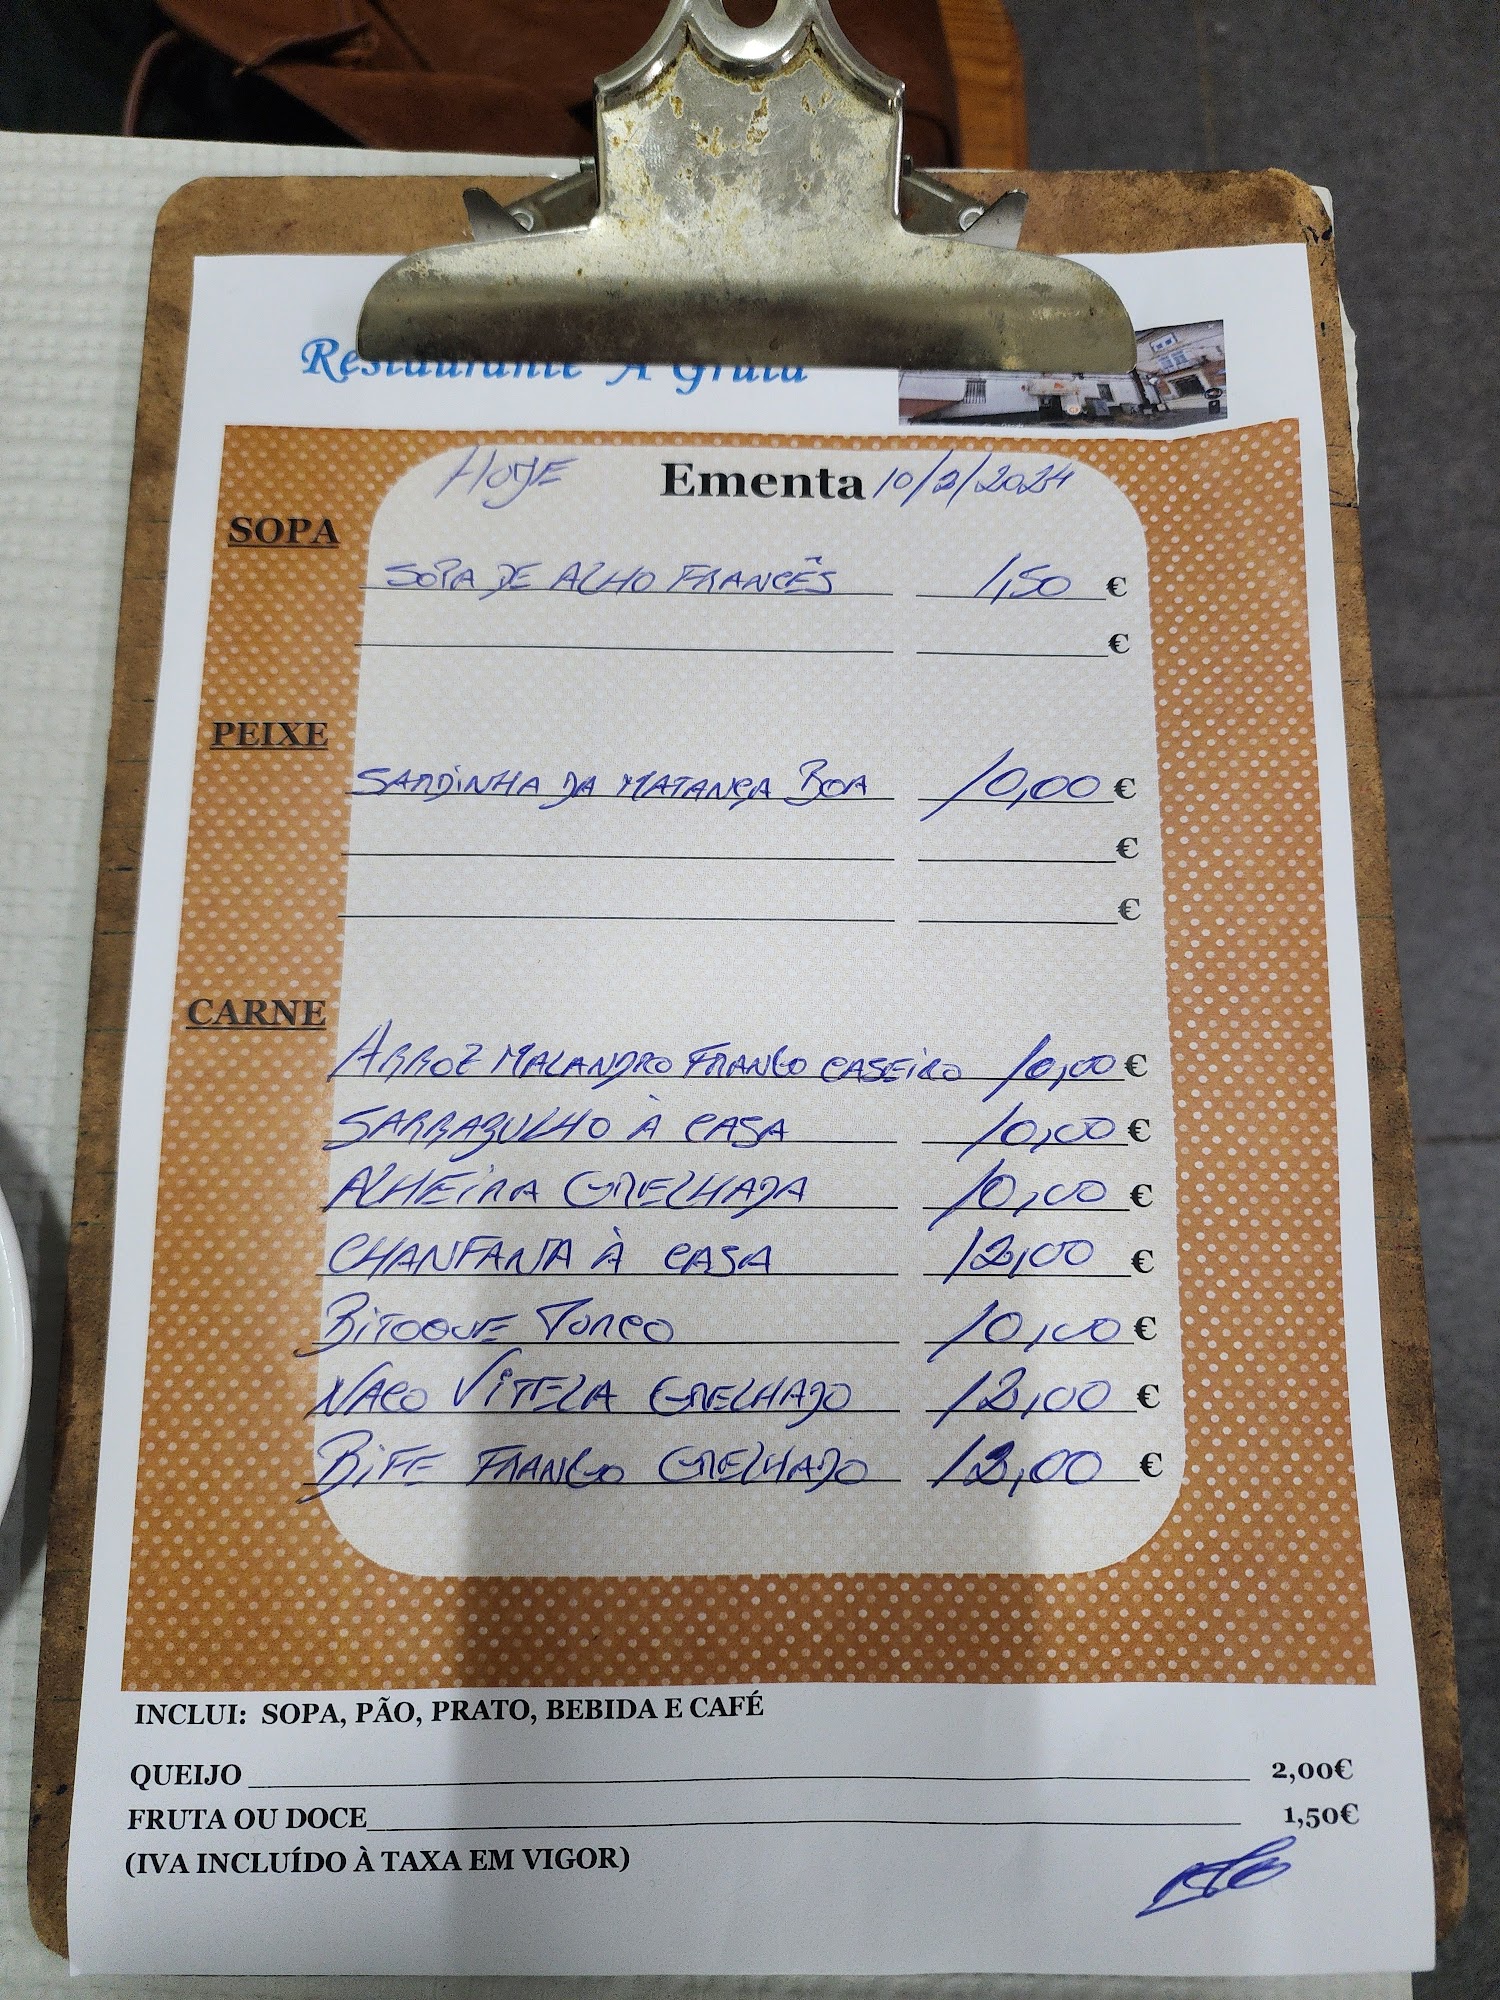 Restaurante A Gruta
HOJE Ementa 10/2/2024
SOPA
SOPA DE ALHO FRANCÊS 1,50 €
€
PEIXE
SARDINHA DA MATANÇA BOA 10,00 €
€
€
CARNE
ARROZ MALANDRO FRANGO CASEIRO 10,00 €
SARRABULHO À CASA 10,00 €
ALHEIRA GRELHADA 10,00 €
CHANFANA À CASA 12,00 €
BITOQUE PORCO 10,00 €
NACO VITELA GRELHADO 12,00 €
BIFE FRANGO GRELHADO 12,00 €
INCLUI: SOPA, PÃO, PRATO, BEBIDA E CAFÉ
QUEIJO 2,00€
FRUTA OU DOCE 1,50€
(IVA INCLUÍDO À TAXA EM VIGOR)